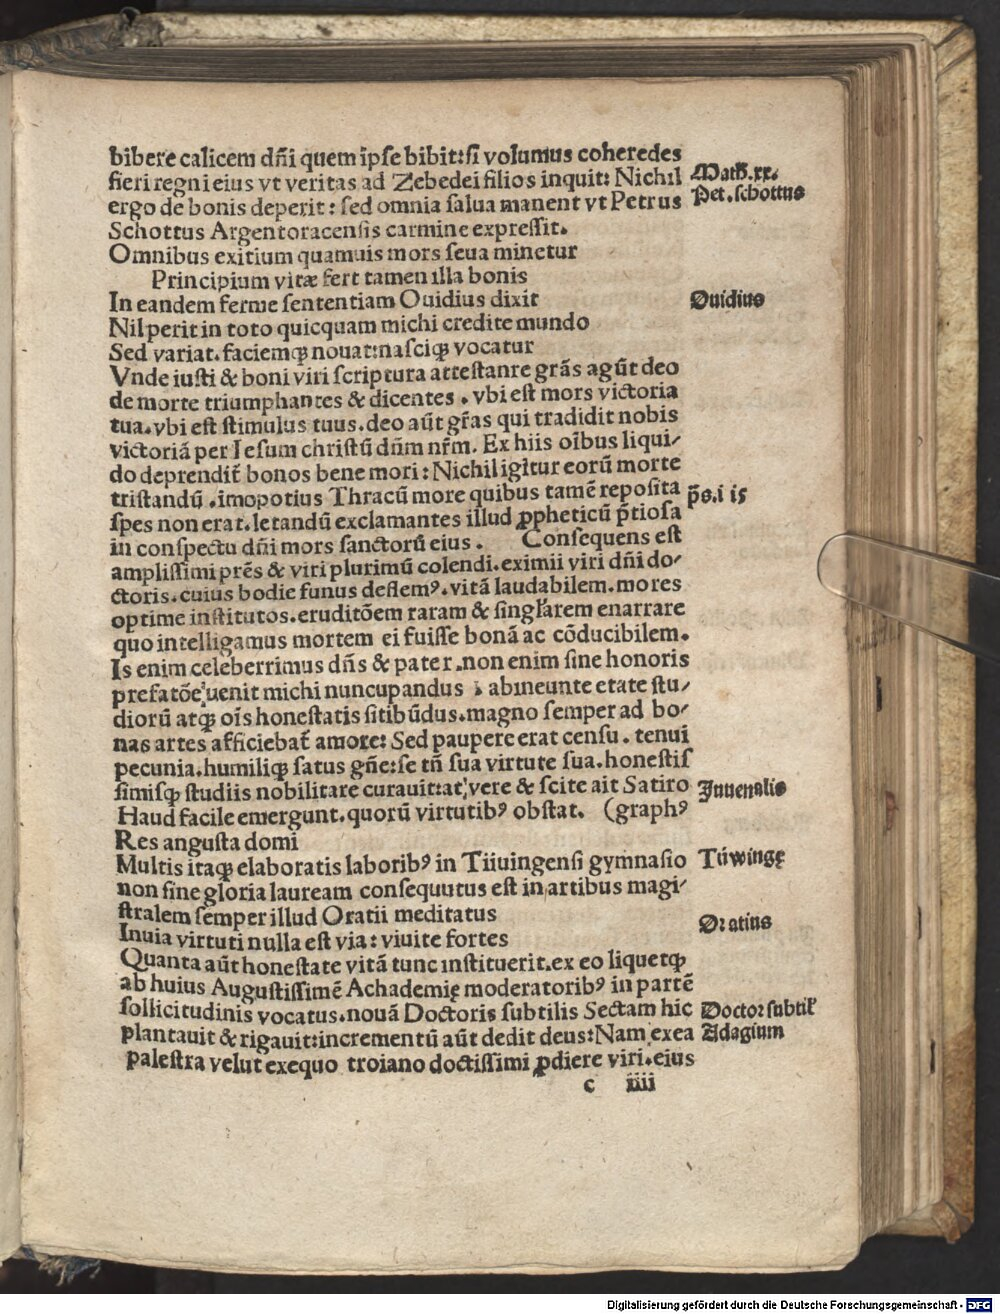 bibere calicem dñi quem ip̃se bibit: si volumus coheredes
fieri regni eius vt veritas ad Zebedei filios inquit: Nichil
Math. xx.
ergo de bonis deperit: sed omnia salua manent vt Petrus
Pet. schottus
Schottus Argentoracensis carmine expressit.
Omnibus exitium quamuis mors seua minetur
Principium vitæ fert tamen illa bonis
In eandem ferme sententiam Ouidius dixit
Ouidius
Nil perit in toto quicquam michi credite mundo
Sed variat. faciemqꝫ nouat: nasciqꝫ vocatur
Vnde iusti & boni viri scriptura attestanre grãs agũt deo
de morte triumphantes & dicentes. vbi est mors victoria
tua. vbi est stimulus tuus. deo aũt gr̃as qui tradidit nobis
victoriã per Iesum christũ dñm nr̃m. Ex hiis oĩbus liqui/
do deprendit̃ bonos bene mori: Nichil igĩtur eorũ morte
tristandũ. imopotius Thracũ more quibus tamẽ reposita
p̃s. i i5
spes non erat. letandũ exclamantes illud ꝓpheticũ p̃tiosa
in conspectu dñi mors sanctorũ eius. Consequens est
amplissimi pr̃es & viri plurimũ colendi. eximii viri dñi do/
ctoris. cuius hodie funus deflemꝰ. vitã laudabilem. mores
optime institutos. eruditõem raram & singl̃arem enarrare
quo intelligamus mortem ei fuisse bonã ac cõducibilem.
Is enim celeberrimus dñs & pater. non enim sine honoris
prefatõe uenit michi nuncupandus : ab ineunte etate stu/
diorũ atqꝫ oĩs honestatis sitibũdus. magno semper ad bo/
nas artes afficiebat̃ amore: Sed paupere erat censu. tenui
pecunia. humiliqꝫ satus gñe: se tñ sua virtute sua. honestis
simisqꝫ studiis nobilitare curauit: at vere & scite ait Satiro
Juuenalis
Haud facile emergunt. quorũ virtutibꝰ obstat. (graphꝰ
Res angusta domi
Multis itaqꝫ elaboratis laboribꝰ in Tiiuingensi gymnasio
Tüwingę
non sine gloria lauream consequutus est in artibus magi/
stralem semper illud Oratii meditatus
Oratius
Inuia virtuti nulla est via: viuite fortes
Quanta aũt honestate vitã tunc instituerit. ex eo liquetqꝫ
ab huius Augustissimẽ Achademię moderatoribꝰ in partẽ
sollicitudinis vocatus. nouã Doctoris subtilis Sectam hic
Doctor subtil̃
plantauit & rigauit: incrementũ aũt dedit deus: Nam exea
Adagium
palestra velut exequo troiano doctissimi ꝓdiere viri. eius
c iiii
Digitalisierung gefördert durch die Deutsche Forschungsgemeinschaft - DFG